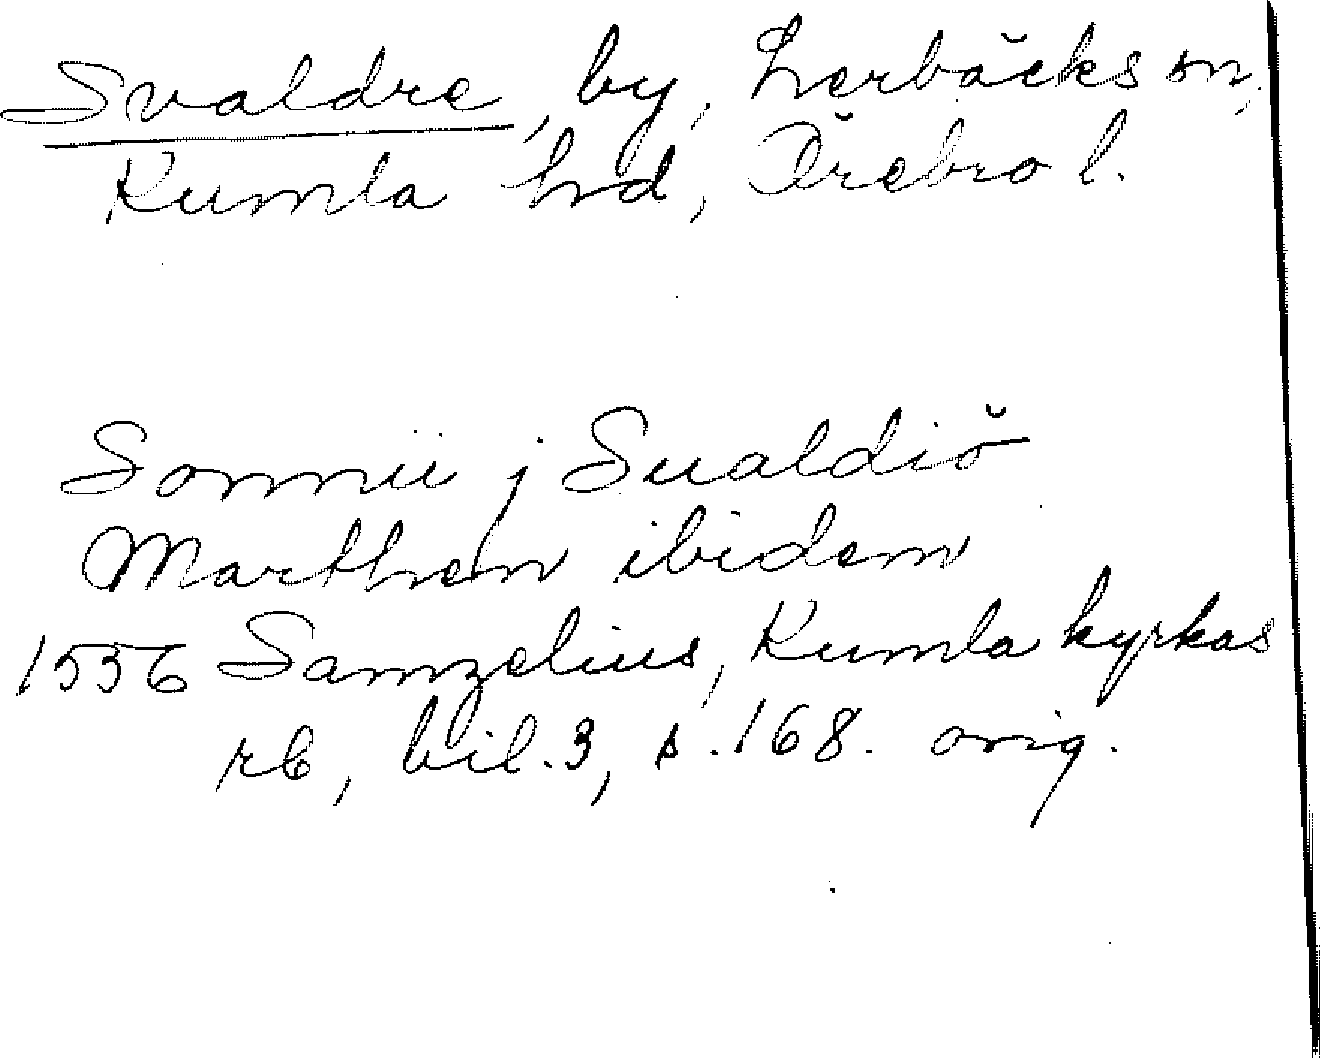 Svaldre, by, Lerbäcks sn,
Kumla hd, Örebro l.
Sonnii j Sualdiö
Marthen ibidem
1556 Samzelius, Kumla kyrkas
rb, bil. 3, s. 168. orig.